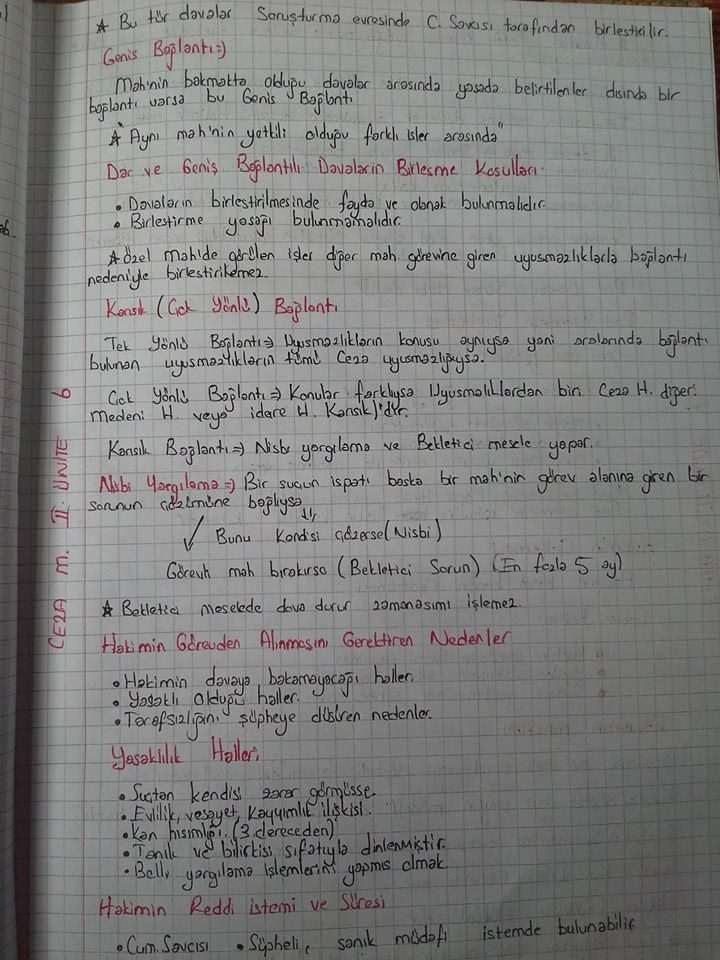 ★ Bu tür davalar Soruşturma evresinde C. Savcısı tarafından birleştirilir.
Geniş Bağlantı⇒)
Mah'nin bakmakta olduğu davalar arasında yasada belirtilenler dışında bir
bağlantı varsa bu Geniş Bağlantı
★ "Aynı mah'nin yetkili olduğu farklı işler arasında"
Dar ve Geniş Bağlantılı Davaların Birleşme Koşulları.
• Davaların birleştirilmesinde fayda ve olanak bulunmalıdır.
• Birleştirme yasağı bulunmamalıdır.
★ Özel mah'de görülen işler diğer mah görevine giren uyuşmazlıklarla bağlantı
nedeniyle birleştirilemez.
Karışık (Çok Yönlü) Bağlantı
Tek Yönlü Bağlantı⇒ Uyuşmazlıkların konusu aynıysa yani aralarında bağlantı
bulunan uyuşmazlıkların tümü Ceza uyuşmazlığıysa.
Çok Yönlü Bağlantı⇒ Konular farklıysa Uyuşmalıklardan biri Ceza H. diğeri
Medeni H. veya idare H. Karışık)'dır.
Karışık Bağlantı⇒) Nisbi yargılama ve Bekletici mesele yapar.
Nisbi Yargılama⇒) Bir suçun ispatı başka bir mah'nin görev alanına giren bir
sorunun çözümüne bağlıysa
Bunu Kendisi çözerse (Nisbi)
Görevli mah bırakırsa (Bekletici Sorun) (En fazla 5 ay)
★ Bekletici meselede dava durur zamanaşımı işlemez.
Hakimin Görevden Alınmasını Gerektiren Nedenler
• Hakimin davaya bakamayacağı haller.
• Yasaklı Olduğu haller.
• Tarafsızlığını şüpheye düşüren nedenler.
Yasaklılık Halleri
• Suçtan kendisi zarar görmüşse.
• Evlilik, vesayet, Kayyımlık ilişkisi.
• Kan hısımlığı. (3. dereceden)
• Tanık ve bilirkişi sıfatıyla dinlenmiştir.
• Belli yargılama işlemlerini yapmış olmak.
Hakimin Reddi istemi ve Süresi
• Cum. Savcısı • Şüpheli, sanık müdafi istemde bulunabilir
CEZA M. II. ÜNİTE 6